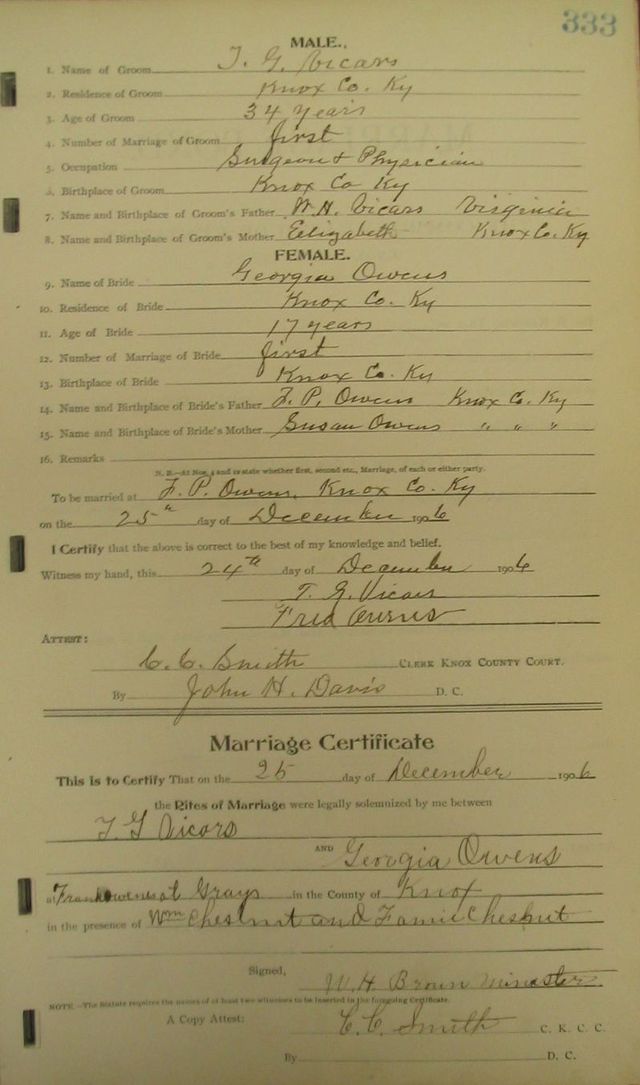 333
MALE.
1. Name of Groom T. G. Vicars
2. Residence of Groom Knox Co. Ky
3. Age of Groom 34 years
4. Number of Marriage of Groom first
5. Occupation Surgeon & Physician
6. Birthplace of Groom Knox Co Ky
7. Name and Birthplace of Groom's Father W. H. Vicars Virginia
8. Name and Birthplace of Groom's Mother Elizabeth Knox Co. Ky
FEMALE.
9. Name of Bride Georgia Owens
10. Residence of Bride Knox Co. Ky
11. Age of Bride 17 years
12. Number of Marriage of Bride first
13. Birthplace of Bride Knox Co. Ky
14. Name and Birthplace of Bride's Father F. P. Owens Knox Co. Ky
15. Name and Birthplace of Bride's Mother Susan Owens " " "
16. Remarks
N. B.—At Nos. 4 and 12 state whether first, second etc., Marriage, of each or either party.
To be married at F. P. Owens, Knox Co. Ky
on the 25th day of December 1906
I Certify that the above is correct to the best of my knowledge and belief.
Witness my hand, this 24th day of December 1906
T. G. Vicars
Fred Owens
ATTEST:
C. C. Smith CLERK KNOX COUNTY COURT.
By John H. Davis D. C.
Marriage Certificate
This is to Certify That on the 25 day of December 1906
the Rites of Marriage were legally solemnized by me between
T G Vicars
AND Georgia Owens
at Frank Owens at Grays in the County of Knox
in the presence of Wm Chesnut and Famie Chesnut
Signed, W. H. Brown Minister
NOTE.—The Statute requires the names of at least two witnesses to be inserted in the foregoing Certificate.
A Copy Attest: C. C. Smith C. K. C. C.
By D. C.